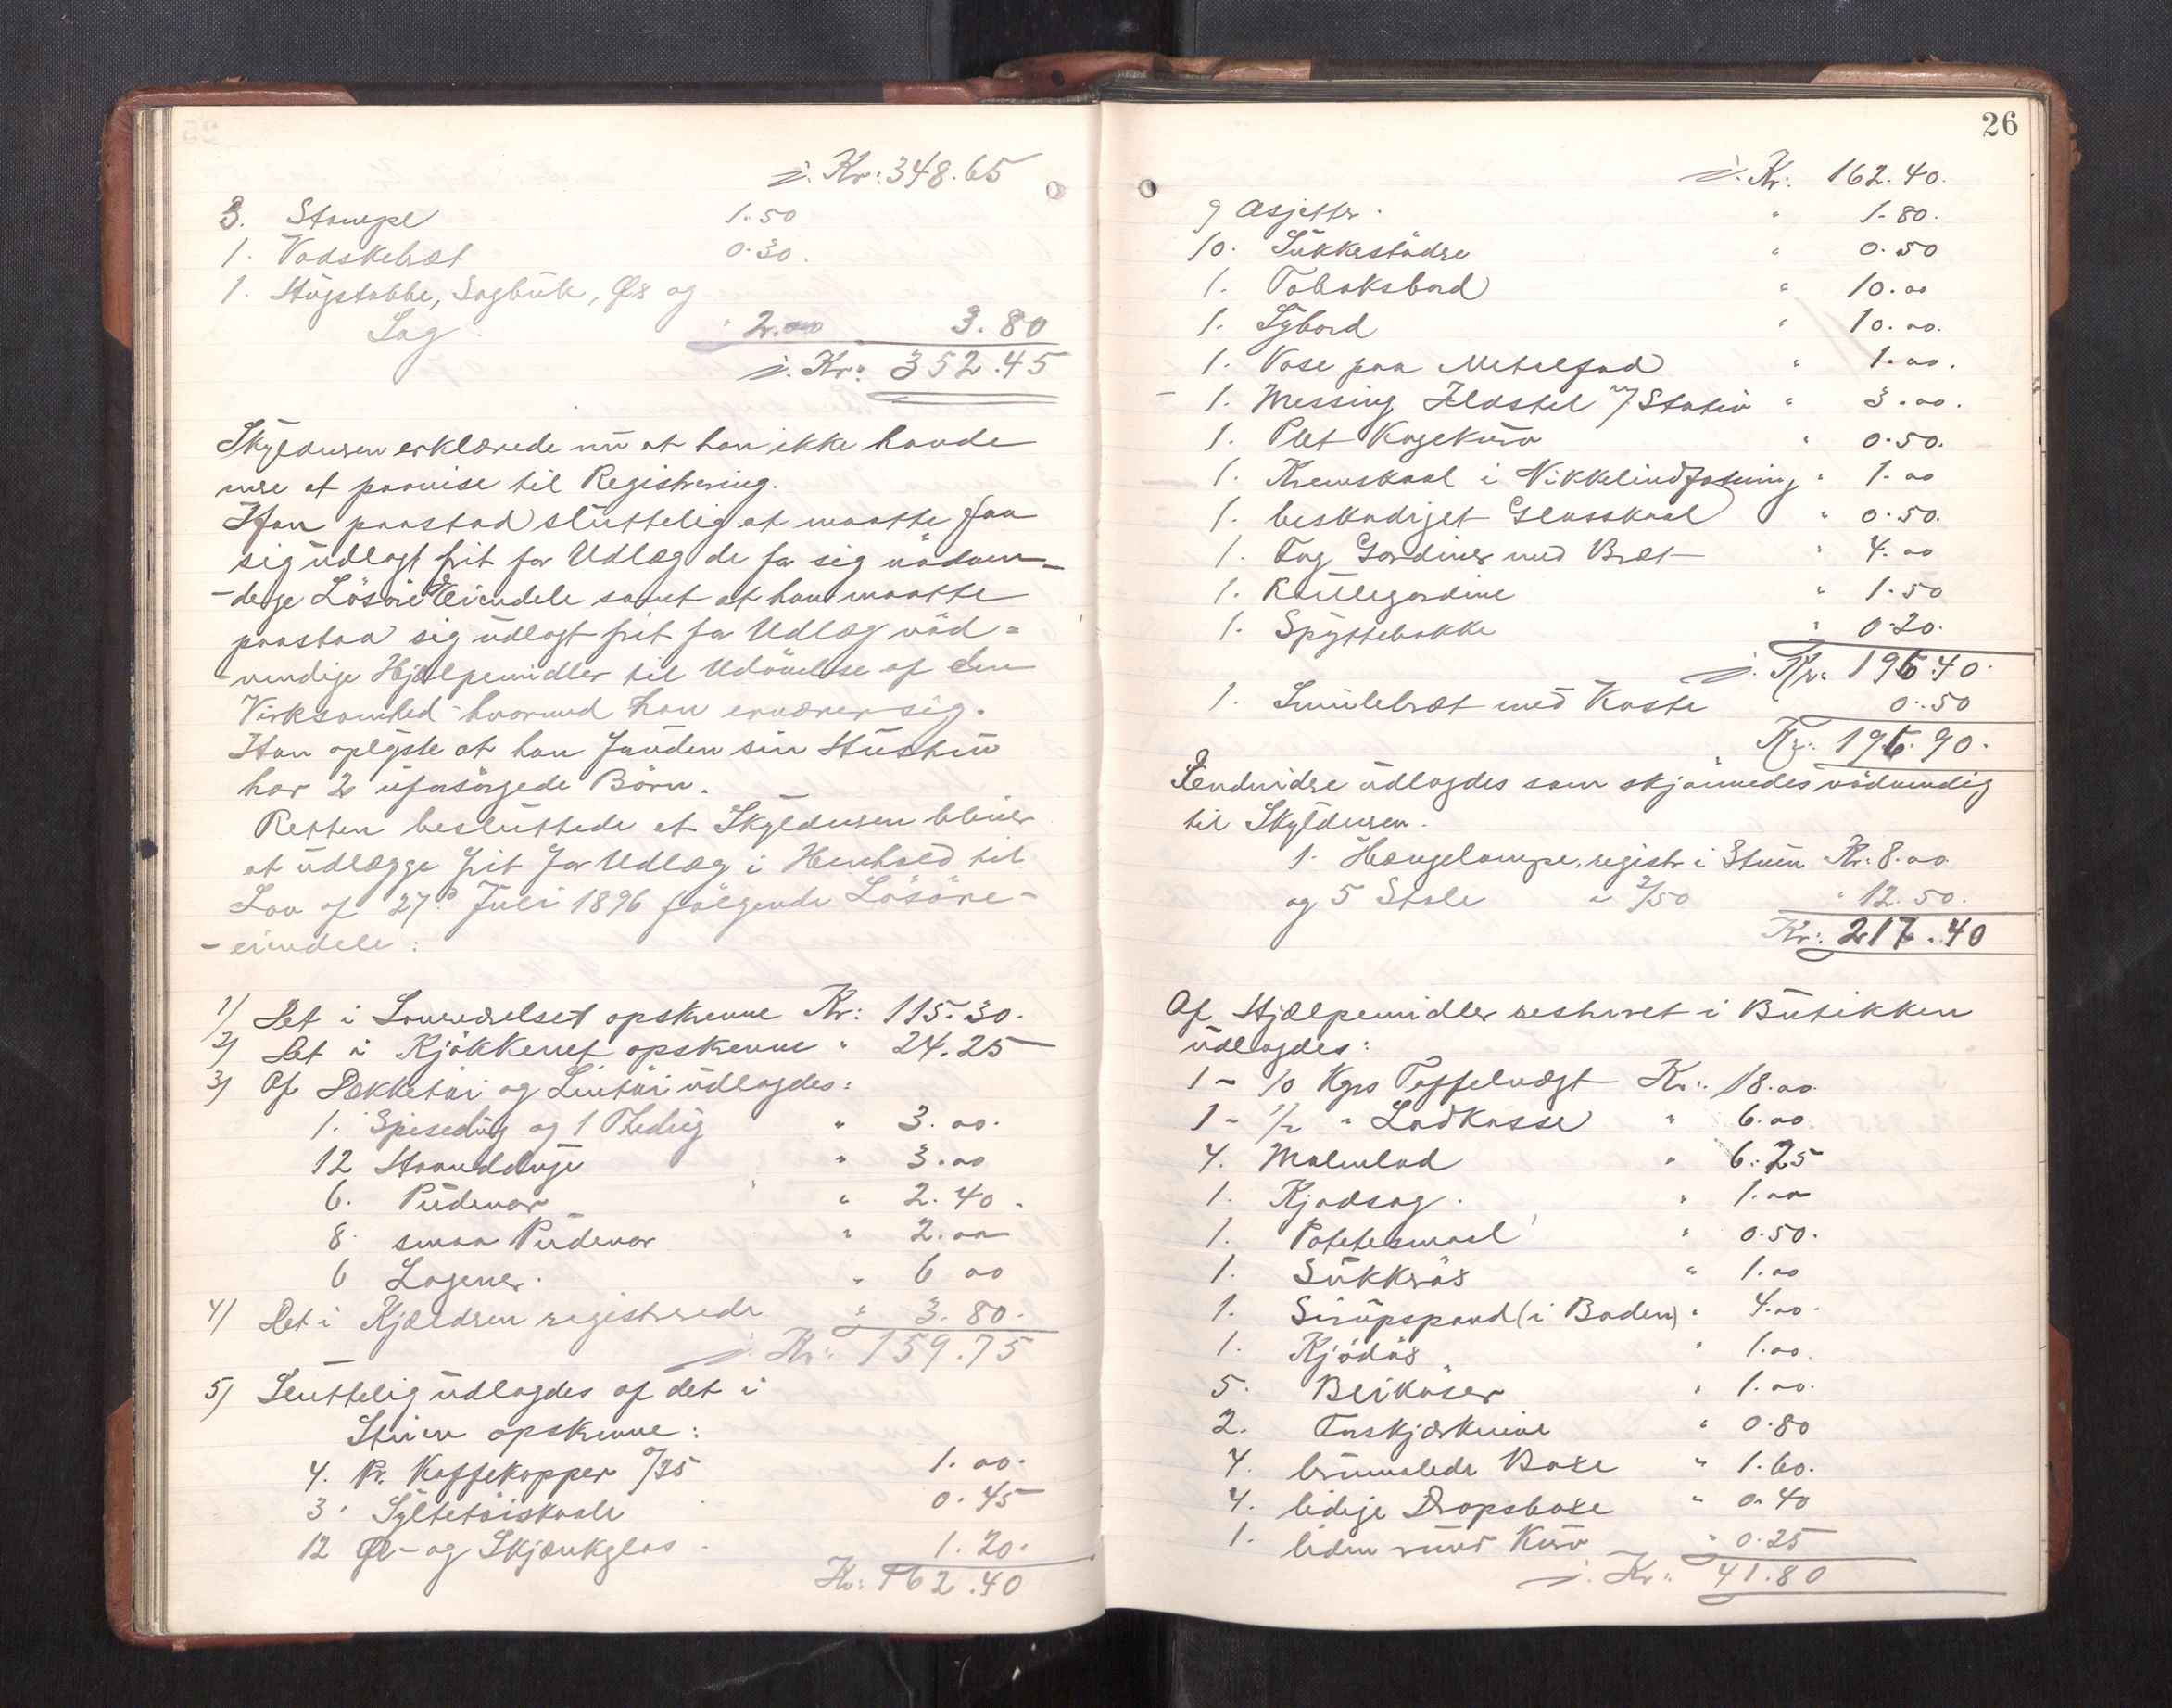 i. Kr: 348.65
3. Stampe 1.50
1. Vadskebræt 0.30.
1. Hugstabbe, Sagbuk, Øx og
Sag " 2.00 3.80
i. Kr: 352.45
Skyldneren erklærede nu at han ikke havde
mere at paavise til Registrering.
Han paastod sluttelig at maatte faa
sig udlagt frit for Udlæg de for sig nødven-
-dige Løsøre Eiendele samt at han maatte
paastaa sig udlagt frit for Udlæg nød=
-vendige Hjælpemidler til Udøvelse af den
Virksomhed hvormed han ernærer sig.
Han oplyste at han foruden sin Hustru
har 2 uforsørgede Børn.
Retten besluttede at Skyldneren bliver
at udlægge frit for Udlæg i Henhold til
Lov af 27de Juli 1896 følgende Løsøre-
-eiendele:
1) Det i Soveværelset opskrevne Kr: 115.30.
2) Det i Kjøkkenet opskrevne " 24.25
3) Af Dækketøi og Lintøi udlagdes:
1. Spisedug og 1 Thedug " 3.00.
12 Haandduge " 3.00
6. Pudevar " 2.40.
8. smaa Pudevar " 2.00
6 Lagener. " 6 00
4) Det i Kjælderen registrerede " 3.80.
i. Kr: 159.75
5) Sluttelig udlagdes af det i
Stuen opskrevne:
4. Pr. Kaffekopper 0/25 1.00.
3. Syltetøiskaale 0.45
12 Øl- og Skjænkglas. 1.20.
Kr: 162.40
26
i. Kr: 162.40.
9 Asjetter. " 1.80.
10. " 0.50
1. Tobaksbord " 10.00
1. Sybord " 10.00.
1. Vase paa Metalfad " 1.00.
- 1. Messing Ildstel m/ Stativ " 3.00.
1. Plet Kagekurv " 0.50.
1. Kremskaal i Nikkelindfatning " 1.00
1. beskadiget Glasskaal " 0.50.
1. Fag Gardiner med Bræt " 4.00
1. Rullegardine " 1.50
1. Spyttebakke " 0.20.
i. Kr: 196.40.
1. Smulebræt med Koste 0.50
Kr: 196.90.
Endvidre udlagdes som skjønnedes nødvendig
til Skyldneren.
1. Hængelampe, registr i Stuen Kr: 8.00
og 5 Stole a 2/50 " 12.50.
Kr: 217.40
Af Hjælpemidler registreret i Butikken
udlagdes:
1 - 10 Kgrs Taffelvægt Kr: 18.00.
1 - 1/2 " Lodkasse " 6.00.
4. Malmlod " 6.25
1. Kjødsag. " 1.00
1. Potetesmaal " 0.50.
1. Sukkerøs " 1.00
1. Sirupspand (i Boden) " 4.00.
1. Kjødøs " 1.00.
5. Blikøser " 1.00.
2. Forskjærknive " 0.80
4. brunmalede Boxe " 1.60.
4. ledige Dropsboxe " 0.40
1. liden rund Kurv " 0.25
i. Kr: 41.80